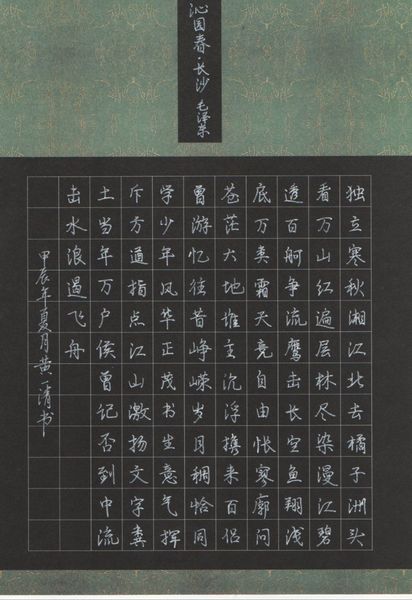 沁园春·长沙 毛泽东
独立寒秋湘江北去橘子洲头
看万山红遍层林尽染漫江碧
透百舸争流鹰击长空鱼翔浅
底万类霜天竞自由怅寥廓问
苍茫大地谁主沉浮携来百侣
曾游忆往昔峥嵘岁月稠恰同
学少年风华正茂书生意气挥
斥方遒指点江山激扬文字粪
土当年万户侯曾记否到中流
击水浪遏飞舟
甲辰年夏月黄一清书